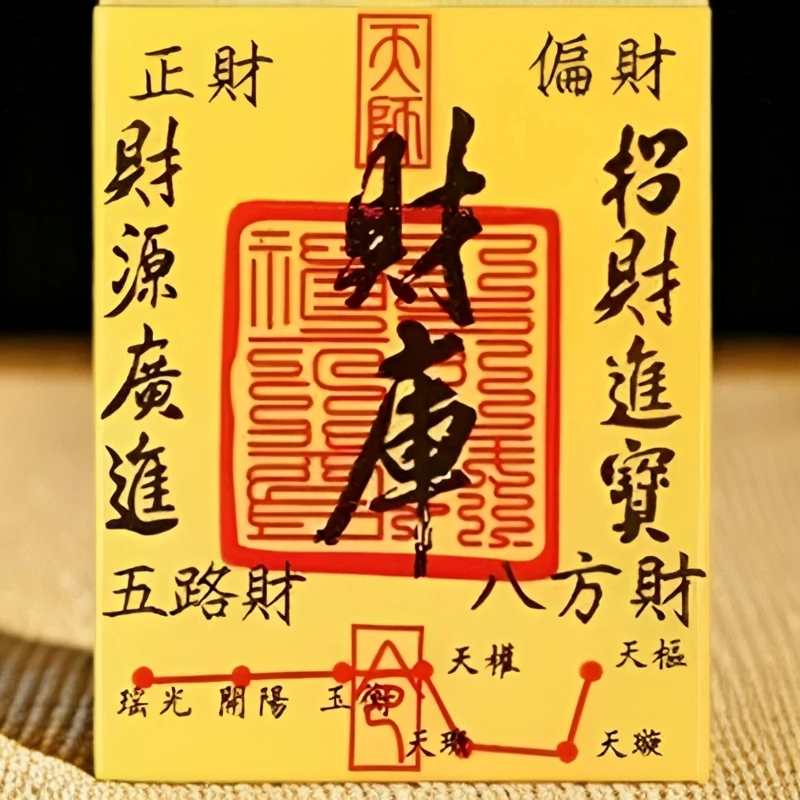 天師
正財
偏財
財庫
招財進寶
財源廣進
五路財
八方財
瑤光
開陽
玉衡
天權
天璣
天璇
天樞